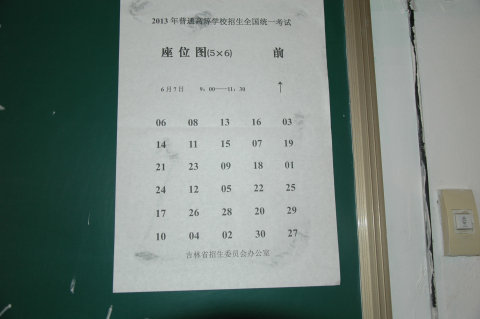 2013年普通高等学校招生全国统一考试
座位图(5×6) 前
6月7日 9:00——11:30 ↑
06 08 13 16 03
14 11 15 07 19
21 23 09 18 01
24 12 05 22 25
17 26 28 20 29
10 04 02 30 27
吉林省招生委员会办公室